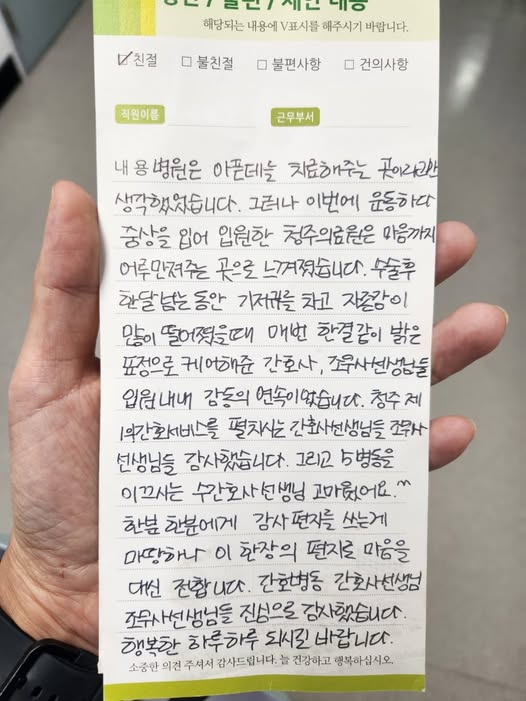 칭찬 / 불편 / 제안 내용
해당되는 내용에 V표시를 해주시기 바랍니다.
☑ 친절 ☐ 불친절 ☐ 불편사항 ☐ 건의사항
직원이름 근무부서
내용 병원은 아픈데를 치료해주는 곳이라고만
생각했었습니다. 그러나 이번에 운동하다
중상을 입어 입원한 청주의료원은 마음까지
어루만져주는 곳으로 느껴졌습니다. 수술후
한달 넘는동안 기저귀를 차고 자존감이
많이 떨어졌을때 매번 한결같이 밝은
표정으로 케어해준 간호사, 조무사선생님들
입원내내 감동의 연속이었습니다. 청주 제
1의간호서비스를 펼치시는 간호사선생님들 조무사
선생님들 감사했습니다. 그리고 5병동을
이끄시는 수간호사선생님 고마웠어요.^^
한분 한분에게 감사편지를 쓰는게
마땅하나 이 한장의 편지로 마음을
대신 전합니다. 간호병동 간호사선생님
조무사선생님들 진심으로 감사했습니다.
행복한 하루하루 되시길 바랍니다.
소중한 의견 주셔서 감사드립니다. 늘 건강하고 행복하십시오.